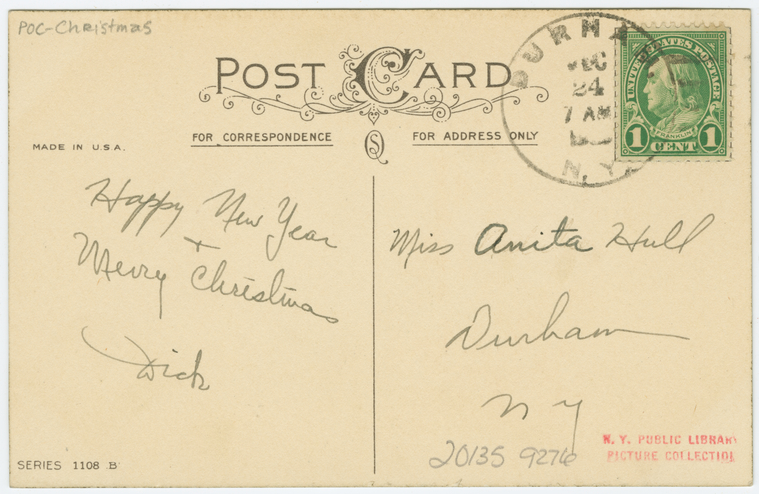 POC-Christmas
POST CARD
FOR CORRESPONDENCE
FOR ADDRESS ONLY
MADE IN U.S.A.
DURHA
DEC
24
7 AM
N.Y.
UNITED STATES POSTAGE
FRANKLIN
1 CENT 1
Happy New Year
+
Merry Christmas
Dick
Miss Anita Hull
Durham
N Y
20135 9276
N. Y. PUBLIC LIBRARY
PICTURE COLLECTION
SERIES 1108 B